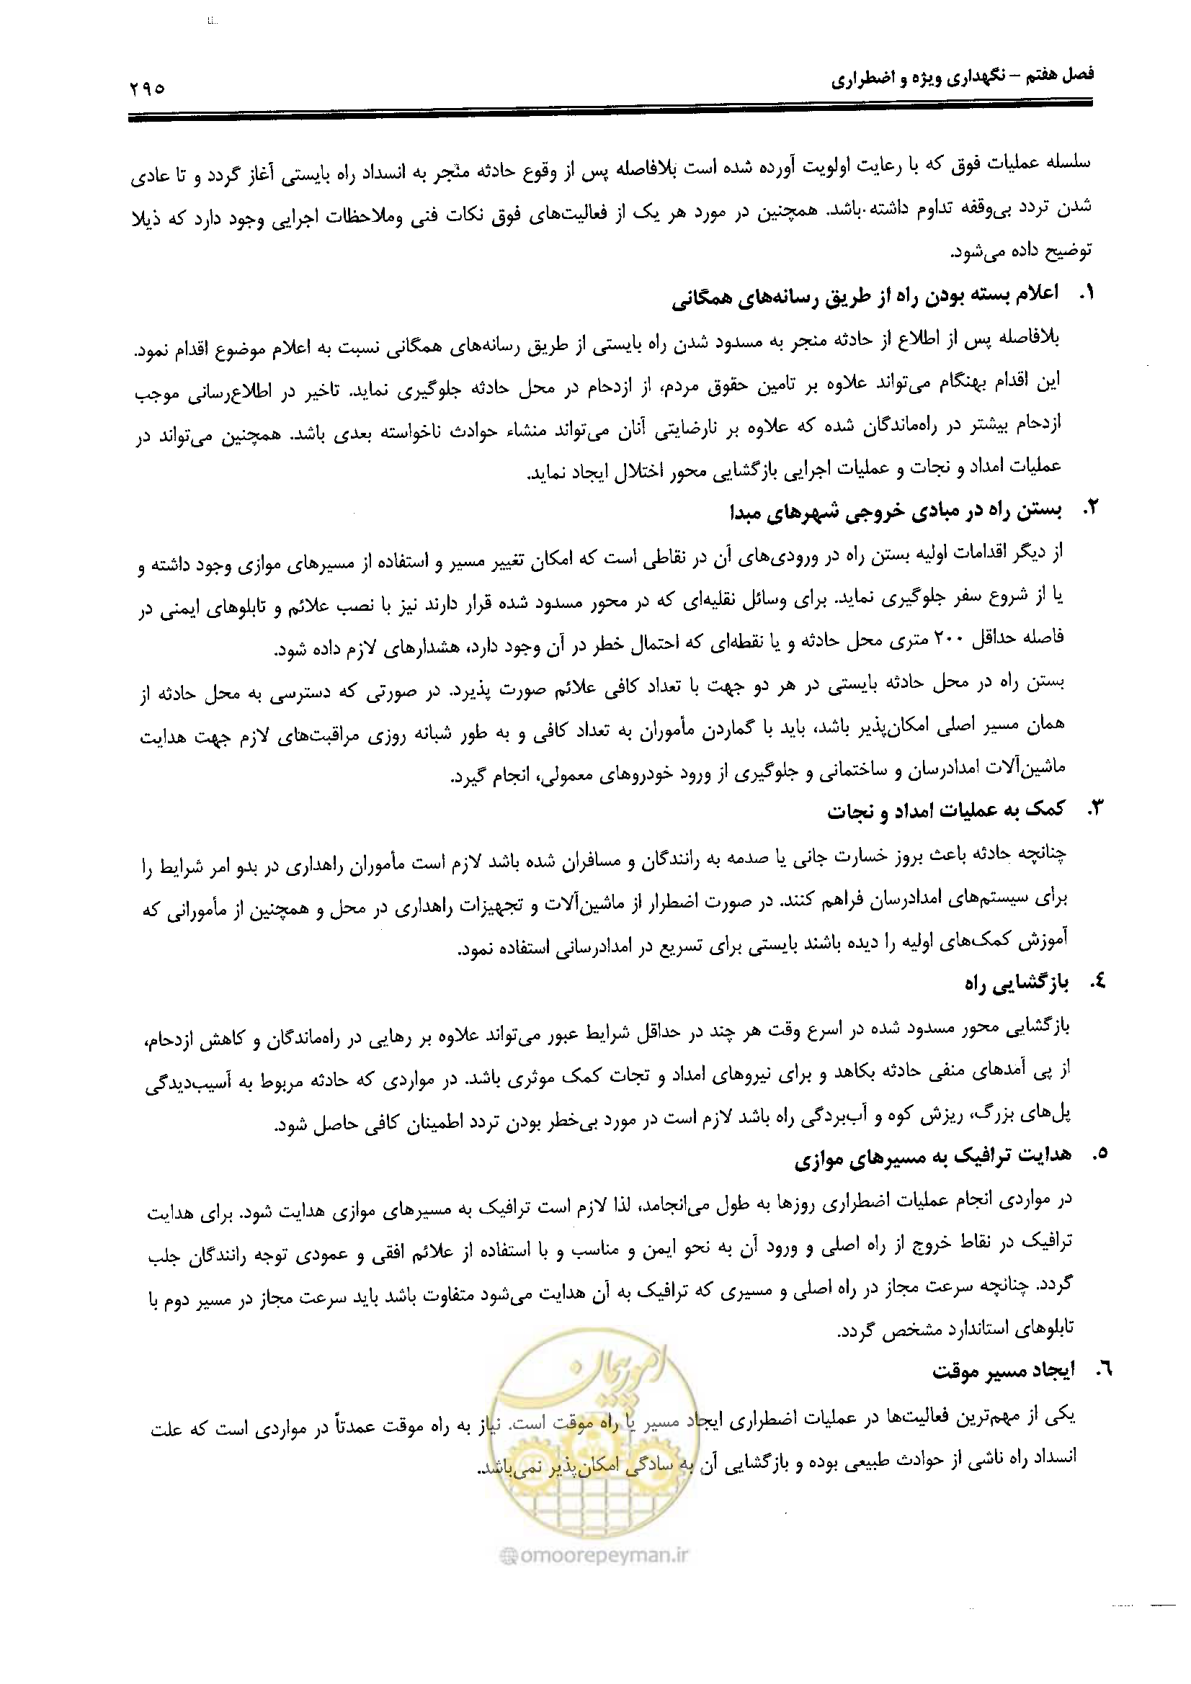 فصل هفتم – نگهداری ویژه و اضطراری
۲۹۵
سلسله عملیات فوق که با رعایت اولویت آورده شده است بلافاصله پس از وقوع حادثه منجر به انسداد راه بایستی آغاز گردد و تا عادی
شدن تردد بی‌وقفه تداوم داشته باشد. همچنین در مورد هر یک از فعالیت‌های فوق نکات فنی وملاحظات اجرایی وجود دارد که ذیلا
توضیح داده می‌شود.
۱. اعلام بسته بودن راه از طریق رسانه‌های همگانی
بلافاصله پس از اطلاع از حادثه منجر به مسدود شدن راه بایستی از طریق رسانه‌های همگانی نسبت به اعلام موضوع اقدام نمود.
این اقدام بهنگام می‌تواند علاوه بر تامین حقوق مردم، از ازدحام در محل حادثه جلوگیری نماید. تاخیر در اطلاع‌رسانی موجب
ازدحام بیشتر در راه‌ماندگان شده که علاوه بر نارضایتی آنان می‌تواند منشاء حوادث ناخواسته بعدی باشد. همچنین می‌تواند در
عملیات امداد و نجات و عملیات اجرایی بازگشایی محور اختلال ایجاد نماید.
۲. بستن راه در مبادی خروجی شهرهای مبدا
از دیگر اقدامات اولیه بستن راه در ورودی‌های آن در نقاطی است که امکان تغییر مسیر و استفاده از مسیرهای موازی وجود داشته و
یا از شروع سفر جلوگیری نماید. برای وسائل نقلیه‌ای که در محور مسدود شده قرار دارند نیز با نصب علائم و تابلوهای ایمنی در
فاصله حداقل ۲۰۰ متری محل حادثه و یا نقطه‌ای که احتمال خطر در آن وجود دارد، هشدارهای لازم داده شود.
بستن راه در محل حادثه بایستی در هر دو جهت با تعداد کافی علائم صورت پذیرد. در صورتی که دسترسی به محل حادثه از
همان مسیر اصلی امکان‌پذیر باشد، باید با گماردن مأموران به تعداد کافی و به طور شبانه روزی مراقبت‌های لازم جهت هدایت
ماشین‌آلات امدادرسان و ساختمانی و جلوگیری از ورود خودروهای معمولی، انجام گیرد.
۳. کمک به عملیات امداد و نجات
چنانچه حادثه باعث بروز خسارت جانی یا صدمه به رانندگان و مسافران شده باشد لازم است مأموران راهداری در بدو امر شرایط را
برای سیستم‌های امدادرسان فراهم کنند. در صورت اضطرار از ماشین‌آلات و تجهیزات راهداری در محل و همچنین از مأمورانی که
آموزش کمک‌های اولیه را دیده باشند بایستی برای تسریع در امدادرسانی استفاده نمود.
۴. بازگشایی راه
بازگشایی محور مسدود شده در اسرع وقت هر چند در حداقل شرایط عبور می‌تواند علاوه بر رهایی در راه‌ماندگان و کاهش ازدحام،
از پی آمدهای منفی حادثه بکاهد و برای نیروهای امداد و نجات کمک موثری باشد. در مواردی که حادثه مربوط به آسیب‌دیدگی
پل‌های بزرگ، ریزش کوه و آب‌بردگی راه باشد لازم است در مورد بی‌خطر بودن تردد اطمینان کافی حاصل شود.
۵. هدایت ترافیک به مسیرهای موازی
در مواردی انجام عملیات اضطراری روزها به طول می‌انجامد، لذا لازم است ترافیک به مسیرهای موازی هدایت شود. برای هدایت
ترافیک در نقاط خروج از راه اصلی و ورود آن به نحو ایمن و مناسب و با استفاده از علائم افقی و عمودی توجه رانندگان جلب
گردد. چنانچه سرعت مجاز در راه اصلی و مسیری که ترافیک به آن هدایت می‌شود متفاوت باشد باید سرعت مجاز در مسیر دوم با
تابلوهای استاندارد مشخص گردد.
۶. ایجاد مسیر موقت
یکی از مهم‌ترین فعالیت‌ها در عملیات اضطراری ایجاد مسیر یا راه موقت است. نیاز به راه موقت عمدتاً در مواردی است که علت
انسداد راه ناشی از حوادث طبیعی بوده و بازگشایی آن به سادگی امکان‌پذیر نمی‌باشد.
امور پیمان
@omoorepeyman.ir